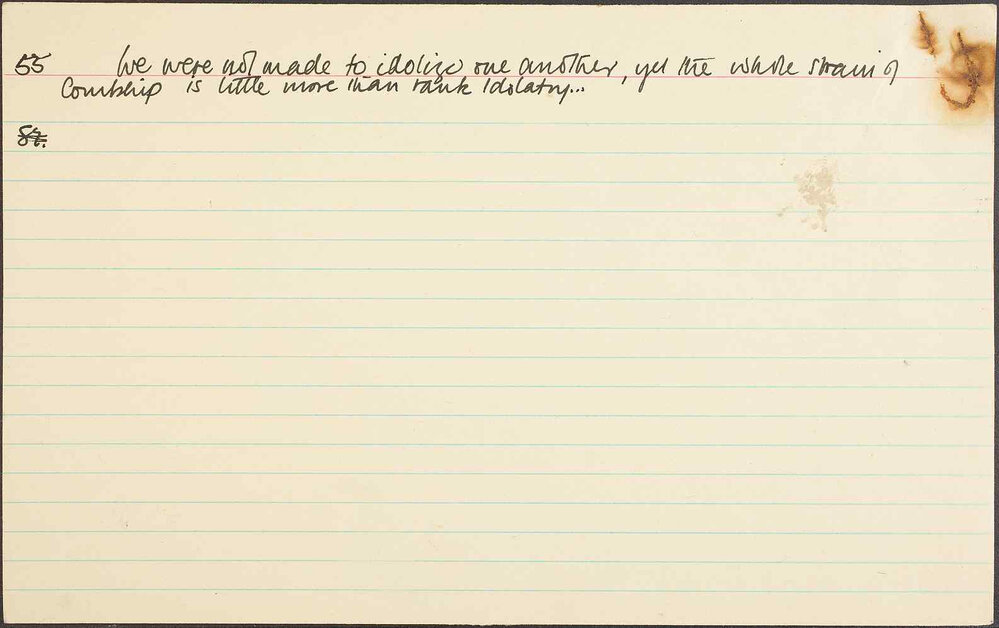 55 We were not made to idolize one another, yet the whole strain of
Courtship is little more than rank Idolatry...
87.